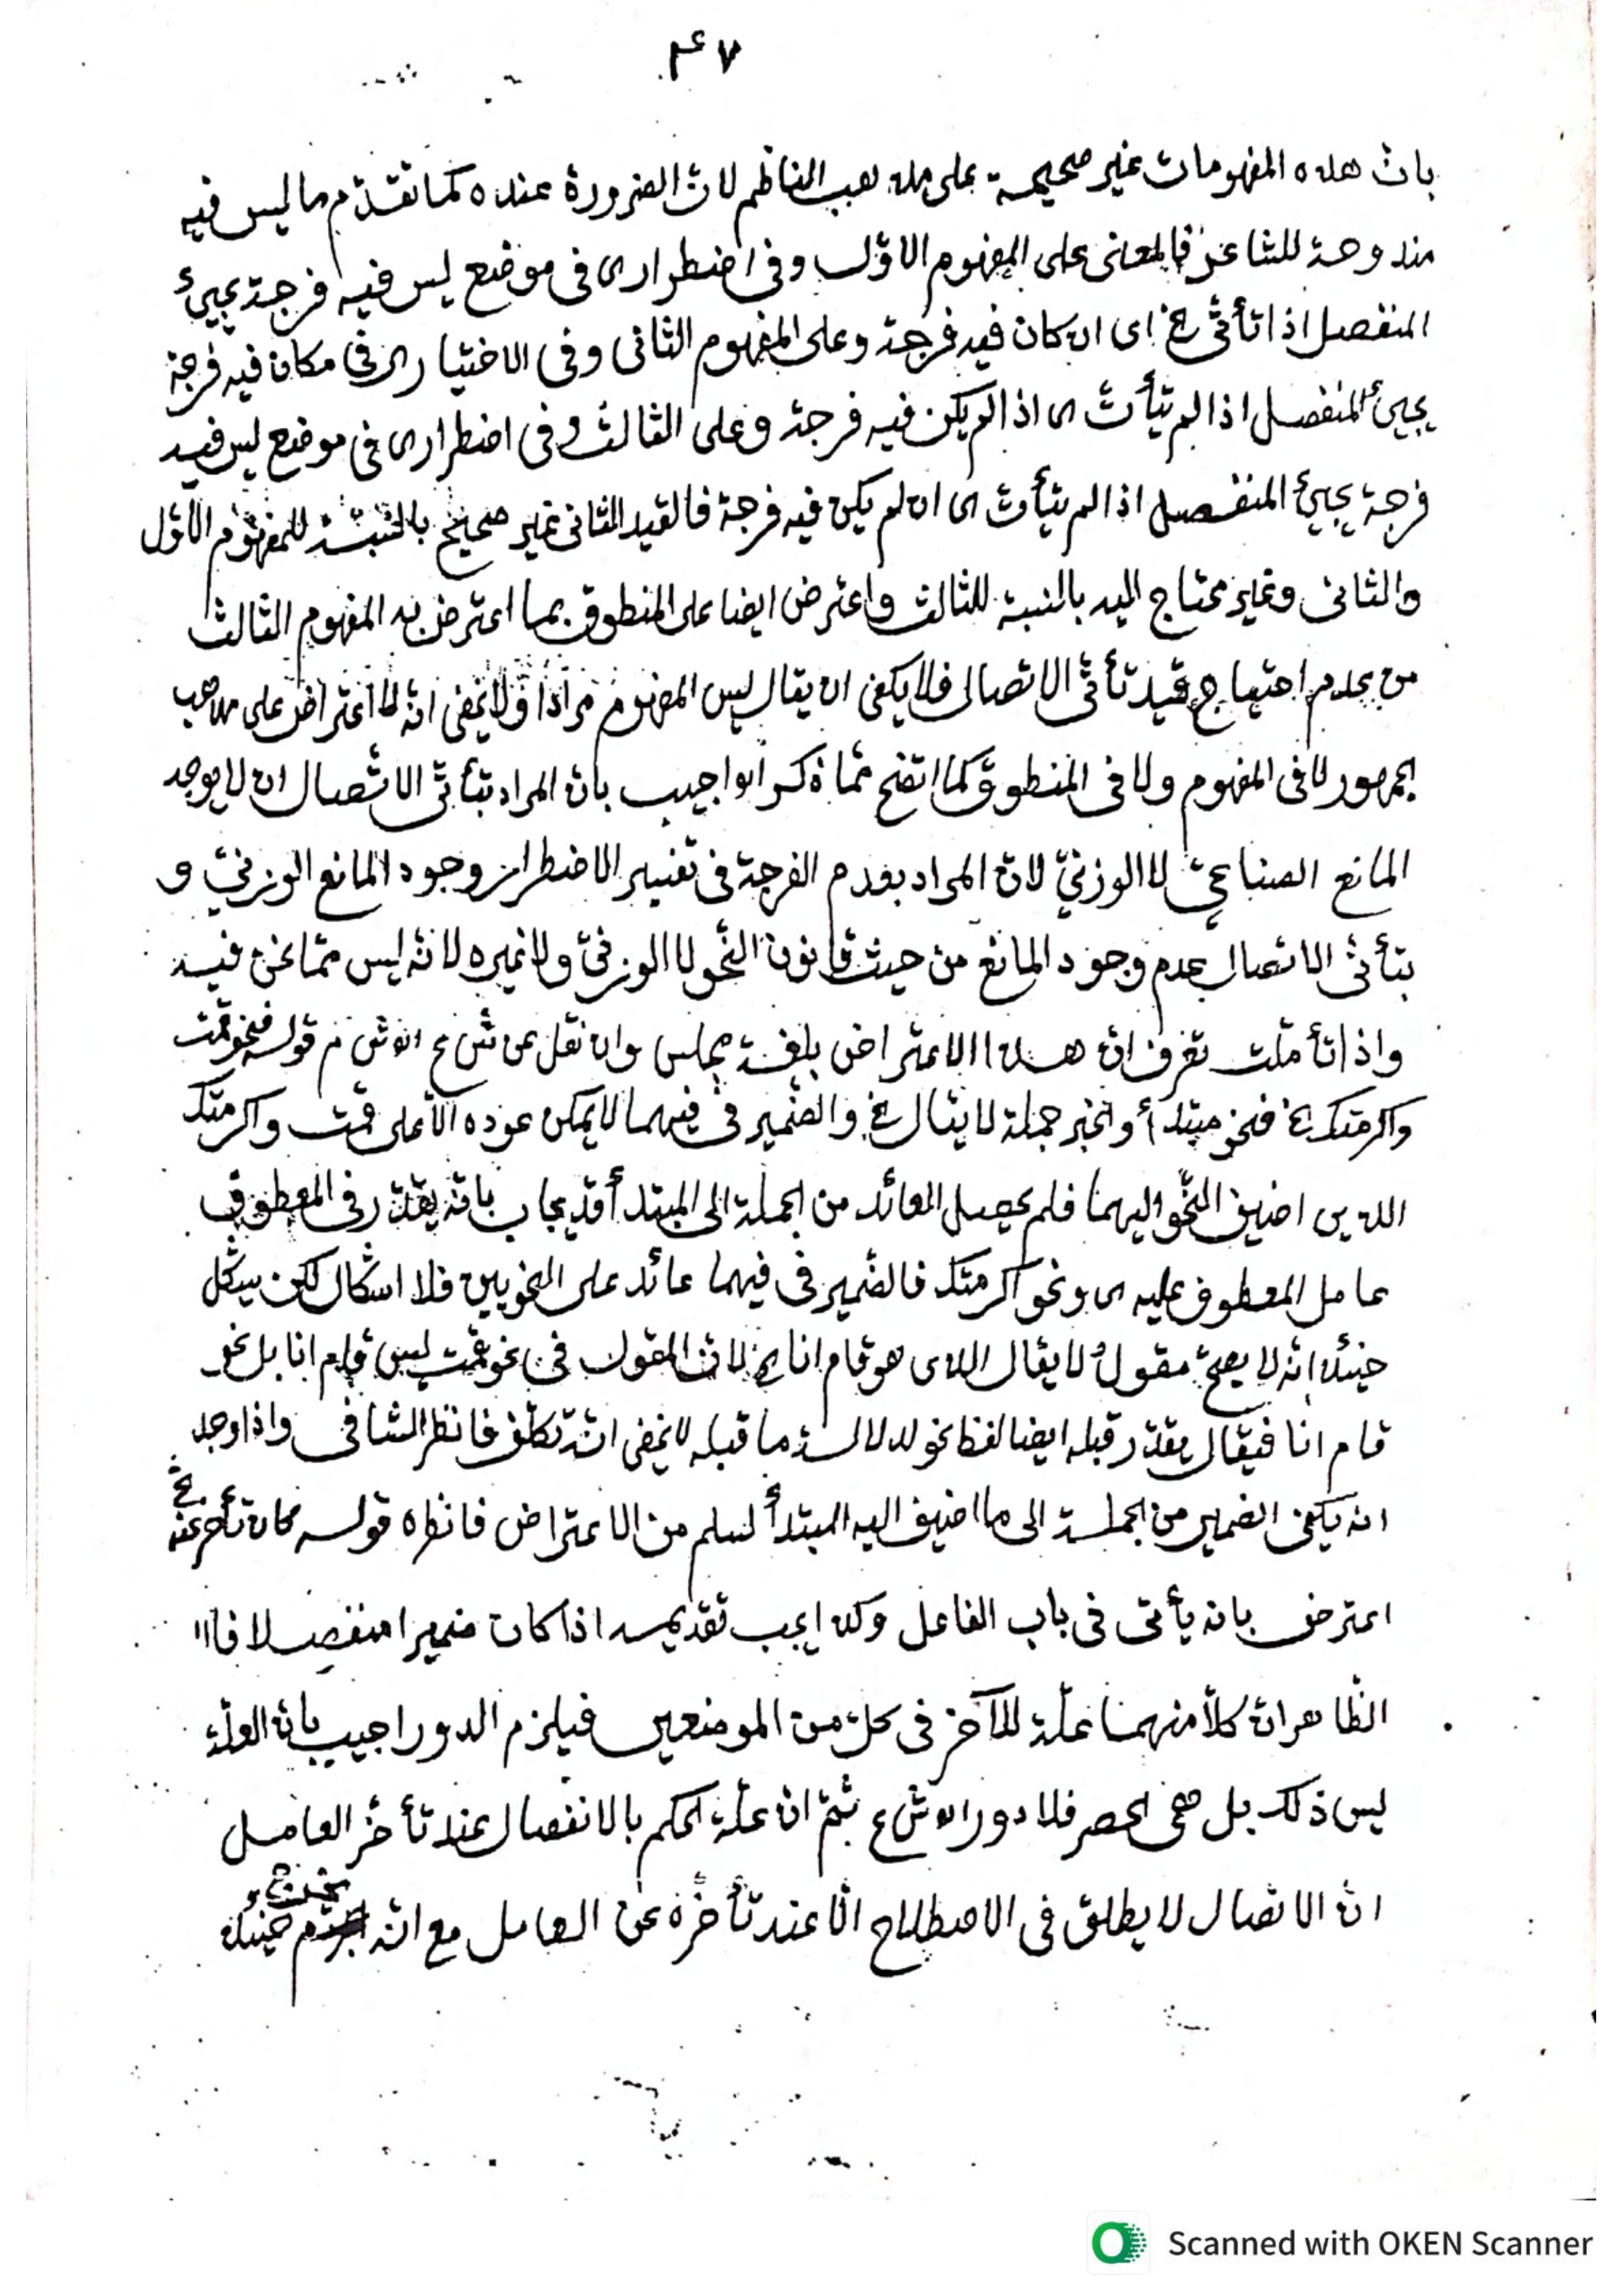 ۴۷
بان هذه المفهومات غير صحيحة على مذهب الناظم لان الضرورة عنده كما تقدم ما ليس فيه
مندوحة للشاعر فالمعنى على المفهوم الاوّل وفى اضطرارى فى موضع ليس فيه فرجة يجيئ
المنفصل اذا تأتّى الخ اى ان كان فيه فرجة وعلى المفهوم الثانى وفى الاختيارى فى مكان فيه فرجة
يجيئ المنفصل اذا لم يتأت اى اذا لم يكن فيه فرجة وعلى الثالث وفى اضطرارى فى موضع ليس فيه
فرجة يجيئ المنفصل اذا لم يتأت اى ان لم يكن فيه فرجة فالقيد الثانى غير صحيح بالنسبة للمفهوم الاوّل
والثانى وغير محتاج اليه بالنسبة للثالث واعترض ايضا على المنطوق بما اعترض به المفهوم الثالث
من عدم احتياج قيد تأتّى الاتصال فلا يكفى ان يقال ليس المفهوم مرادا ولا يخفى انه لا اعتراض على مذهب
الجمهور لا فى المفهوم ولا فى المنطوق كما اتضح ممّا ذكر واجيب بان المراد بتأتّى الاتّصال ان لا يوجد
المانع الصناعىّ لا الوزنىّ لانّ المراد بعدم الفرجة فى تفسير الاضطرار وجود المانع الوزنىّ و
بتأتّى الاتصال عدم وجود المانع من حيث قانون النّحو لا الوزنىّ ولا غيره لانّه ليس ممّا نحن فيه
واذا تأملت تعرف انّ هذا الاعتراض بلغة مجلس وان نقل عن ش ع قوله فنحو قمت
واكرمتك الخ فنحو مبتدأ والخبر جملة لا يقال الخ والضّمير فى فيهما لا يمكن عوده الّا على قمت واكرمتك
الذين اضيف النّحو اليهما فلم يحصل العائد من الجملة الى المبتدأ قد يجاب بانه يقدّر فى المعطوف
عامل المعطوف عليه اى ونحو اكرمتك فالضّمير فى فيهما عائد على النحويين فلا اشكال لكن يشكل
حينئذ انّه لا يصحّ مقول لا يقال الذى هو قام انا الخ لانّ المقول فى نحو قمت ليس قام انا بل نحو
قام انا فيقال يقدّر قبله ايضا لفظ نحو لدلالة ما قبله لا يخفى انّه تكلّف فانظر الشافى واذا وجد
انه يكفى الضمير من الجملة الى ما اضيف اليه المبتدأ لسلم من الاعتراض فانظره قوله كان تأخر عنه الخ
اعترض بانه يأتى فى باب الفاعل وكذا يجب تقديمه اذا كان ضميرا منفصلا
الظاهر انّ كلّا منهما علّة للآخر فى كلّ من الموضعين فيلزم الدور اجيب بان العلّة
ليس ذلك بل هى الحصر فلا دور ش ع ثمّ انّ علّة الحكم بالانفصال عند تأخّر العامل
انّ الاتصال لا يطلق فى الاصطلاح الّا عند تأخّره عن العامل مع انّه يخرج حينئذ
Scanned with OKEN Scanner